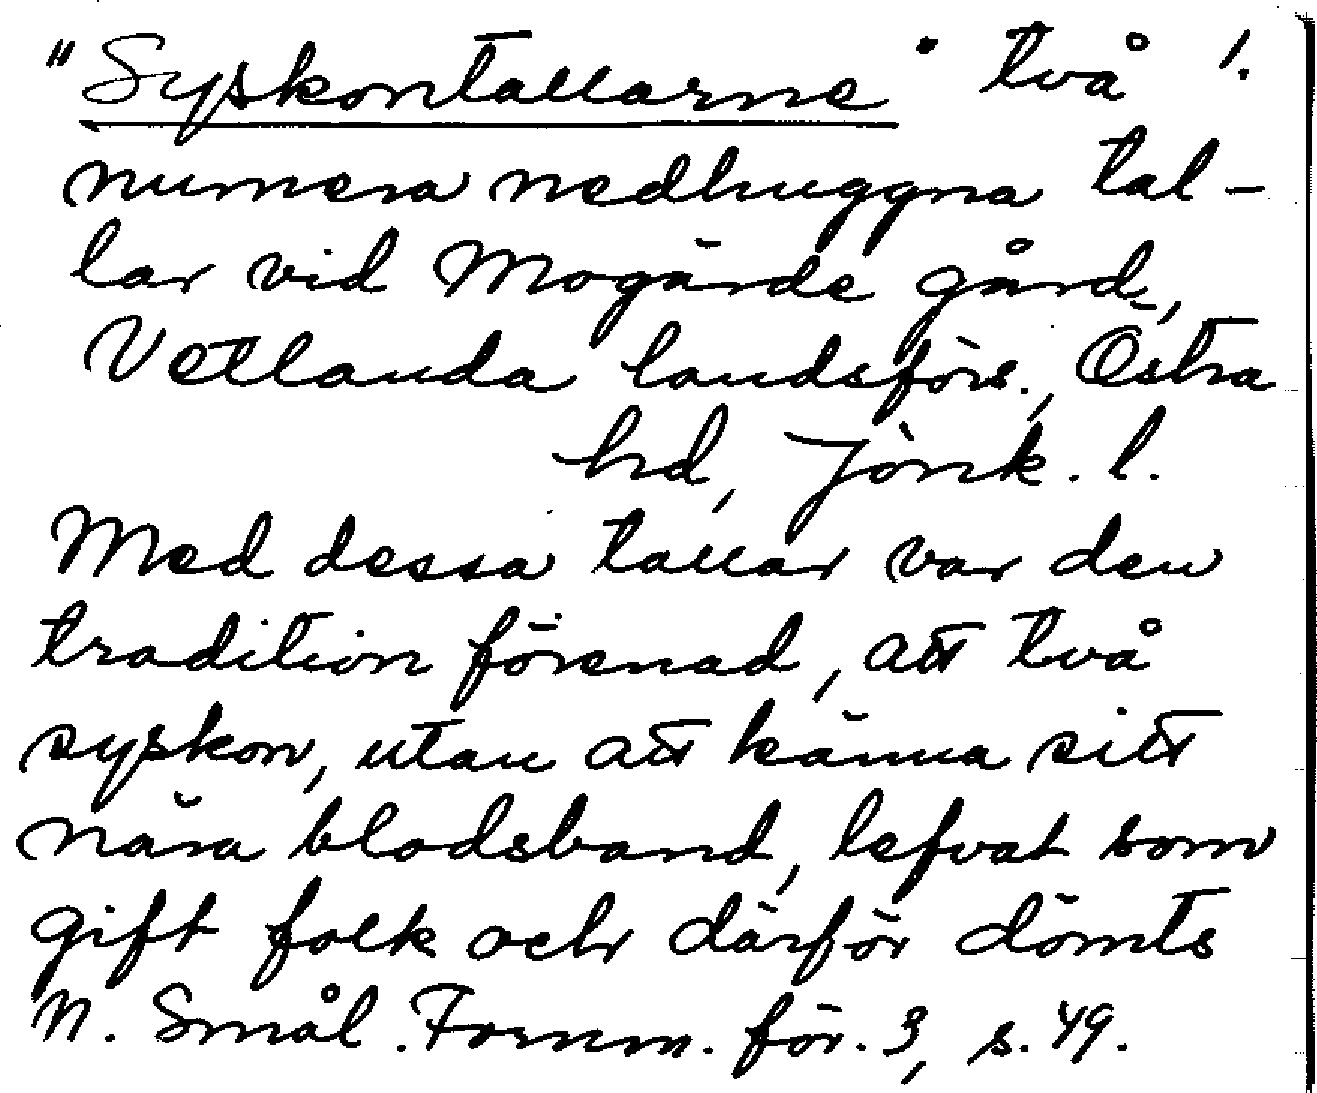 "Syskontallarne" två 1.
numera nedhuggna tal-
lar vid Mogärde gård,
Vetlanda landsförs., Östra
hd, Jönk. l.
Med dessa tallar var den
tradition förenad, att två
syskon, utan att känna sitt
nära blodsband, lefvat som
gift folk och därför dömts
N. Smål. Fornm. för. 3, s. 49.